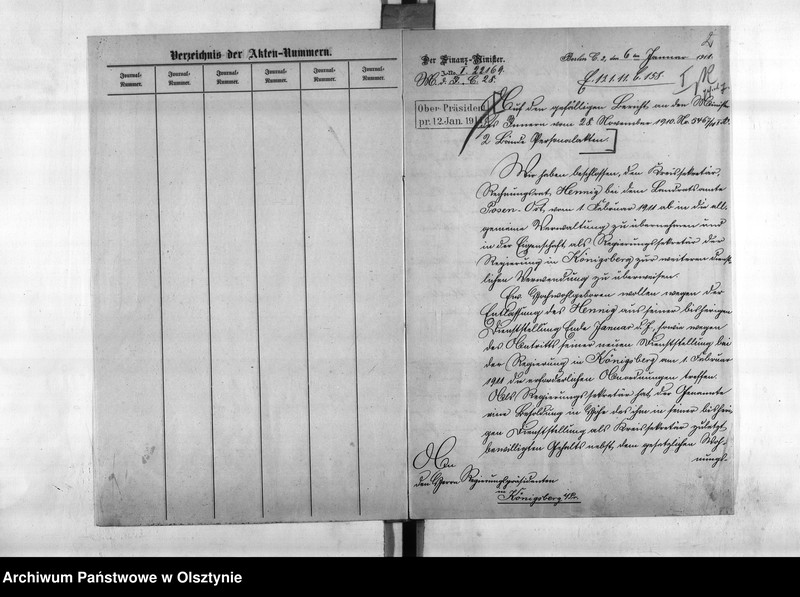 Verzeichnis der Akten-Nummern.
Journal-Nummer. Journal-Nummer. Journal-Nummer. Journal-Nummer. Journal-Nummer. Journal-Nummer.
2
Der Finanz-Minister.
Berlin C. 2, den 6ten Januar 1911.
I. 22169.
Ober-Präsident
pr. 12. Jan. 19
Auf den gefälligen Bericht an den Minister
des Innern vom 28. November 1910. Nr. 5467/
2 Bände Personalakten.
Wir haben beschlossen, den Kreissekretär,
Rechnungsrat, Hennig bei dem Landratsamte
Posen-Ost, vom 1. Februar 1911 ab in die all-
gemeine Verwaltung zu übernehmen und
in der Eigenschaft als Regierungssekretär der
Regierung in Königsberg zur weiteren dienst-
lichen Verwendung zu überweisen.
Euer Hochwohlgeboren wollen wegen der
Entlassung des Hennig aus seiner bisherigen
Dienststellung Ende Januar d. J. sowie wegen
des Antritts seiner neuen Dienststellung bei
der Regierung in Königsberg am 1. Februar
1911 die erforderlichen Anordnungen treffen.
Als Regierungssekretär hat der Genannte
eine Besoldung in Höhe des ihm in seiner bisheri-
gen Dienststellung als Kreissekretär zuletzt
bewilligten Gehalts nebst dem gesetzlichen Woh-
nungs-
An
den Herrn Regierungspräsidenten
in
Königsberg Pr.
Archiwum Państwowe w Olsztynie